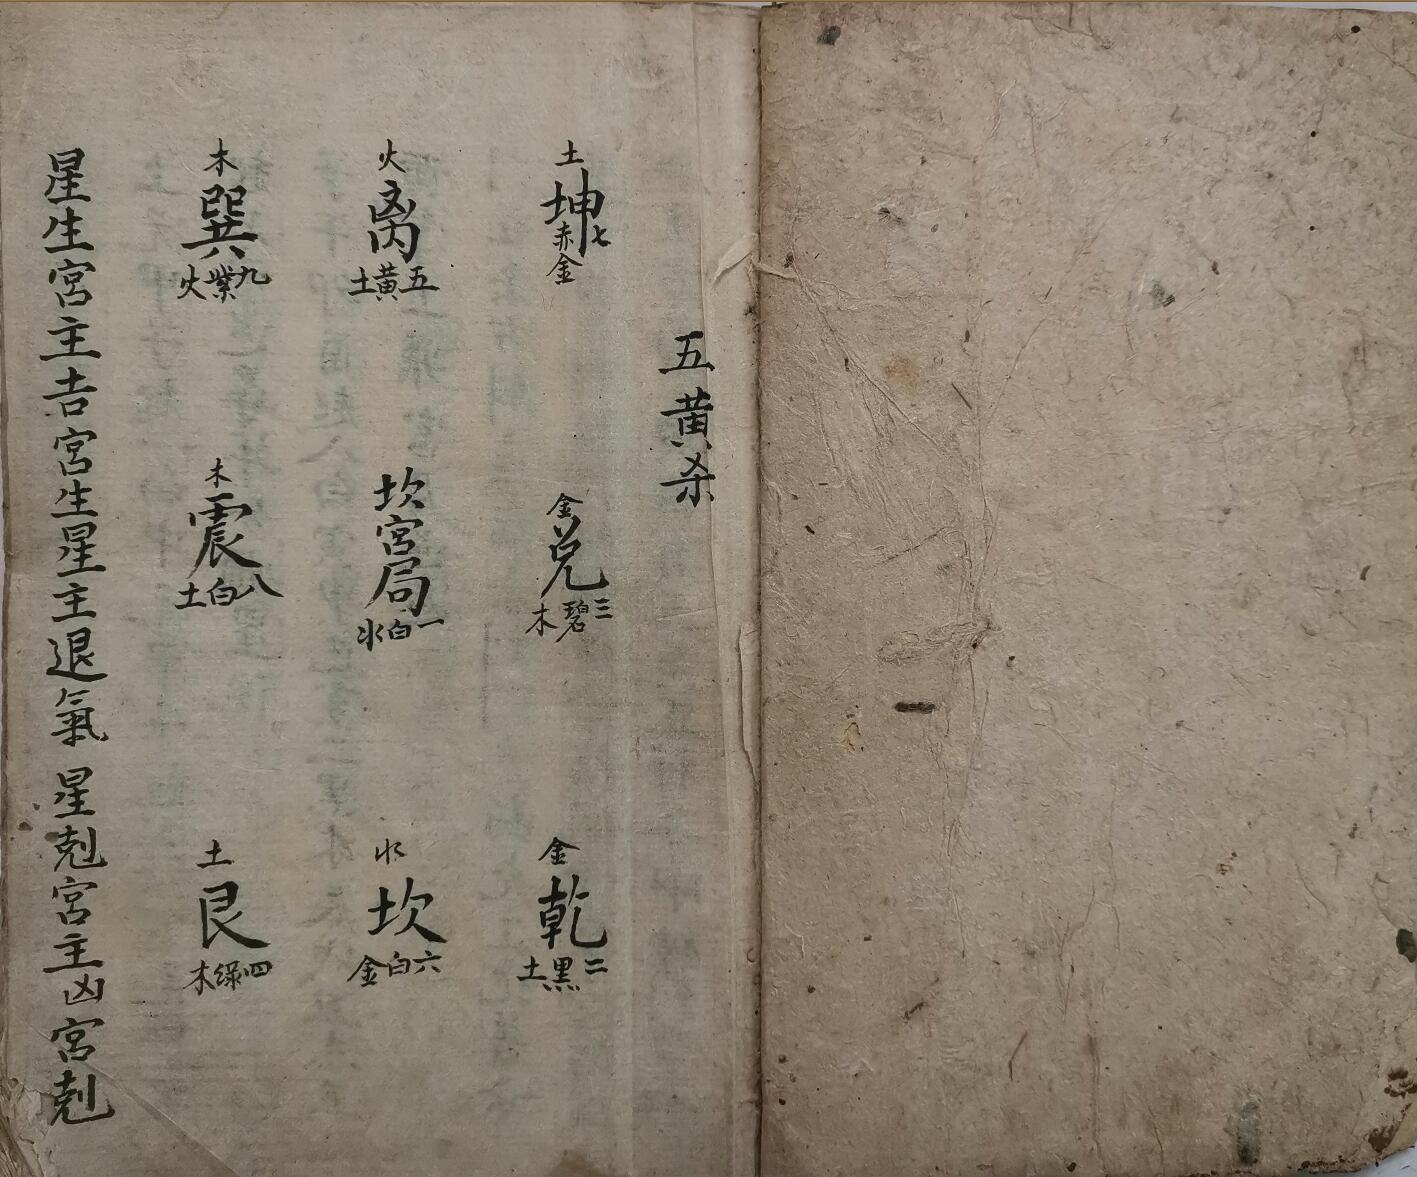 五黄杀
土
坤
七赤金
金
兑
三碧木
金
乾
二黑土
火
离
五黄土
坎宫局
一白水
水
坎
六白金
木
巽
九紫火
木
震
八白土
土
艮
四綠木
星生宫主吉宫生星主退氣 星剋宫主凶宫剋